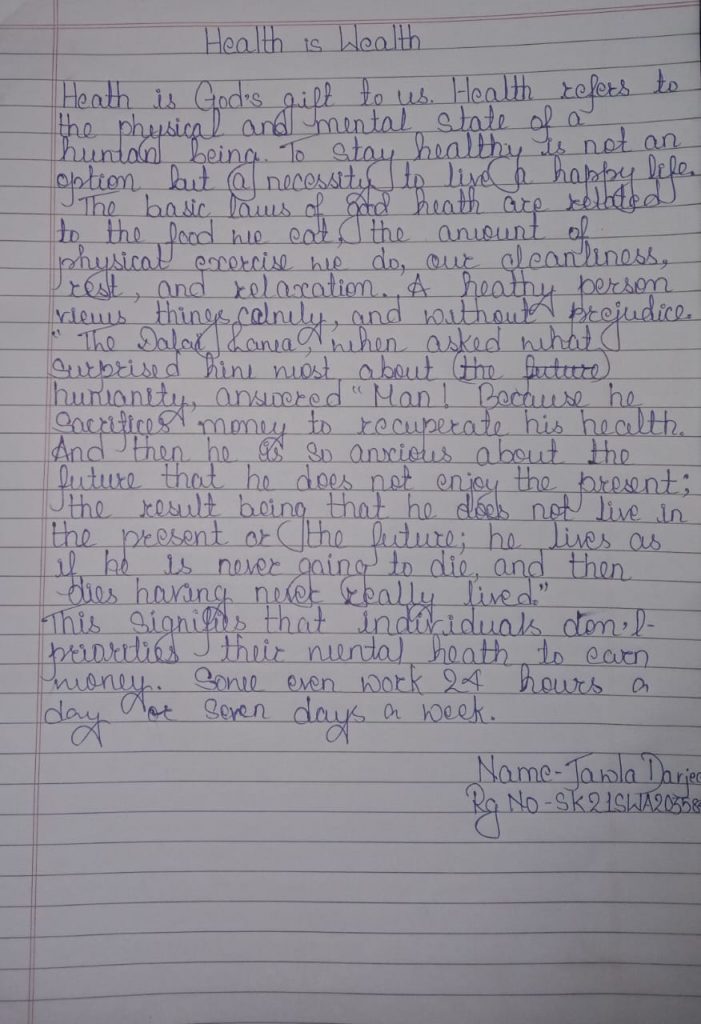 Health is Wealth
Heath is God's gift to us. Health refers to
the physical and mental state of a
human being. To stay healthy is not an
option but a necessity to live a happy life.
The basic laws of good heath are related
to the food we eat, the amount of
physical exercise we do, our cleanliness,
rest, and relaxation. A heathy person
views things calmly, and without prejudice.
" The Dalai Lama, when asked what
surprised him most about the future
humanity, answered "Man! Because he
sacrifices money to recuperate his health.
And then he is so anxious about the
future that he does not enjoy the present;
the result being that he does not live in
the present or the future; he lives as
if he is never going to die, and then
dies having never really lived."
This signifies that individuals don't
priorities their mental heath to earn
money. Some even work 24 hours a
day or seven days a week.
Name-Jamla Darjee
Rg No-SK21SWA20358